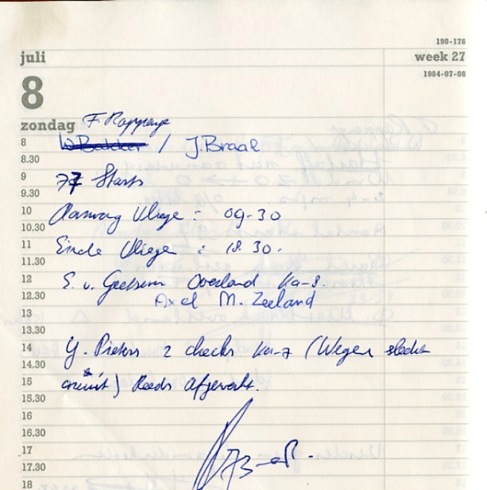 190-176
juli
week 27
1984-07-08
8
zondag
F Rappange
8 W Bakker / J.Braal
8.30
9 77 Starts
9.30
10 Aanvang Vliege : 09-30
10.30
11 Einde Vliegen : 18.30.
11.30
12 E. v. Geetsum Overland Ka-8.
12.30 Axel M. Zeeland
13
13.30
14 Y. Pieters 2 checks Ka-7 (Wegen slecht
14.30
15 circuit) Reeds afgewerkt.
15.30
16
16.30
17
17.30
18